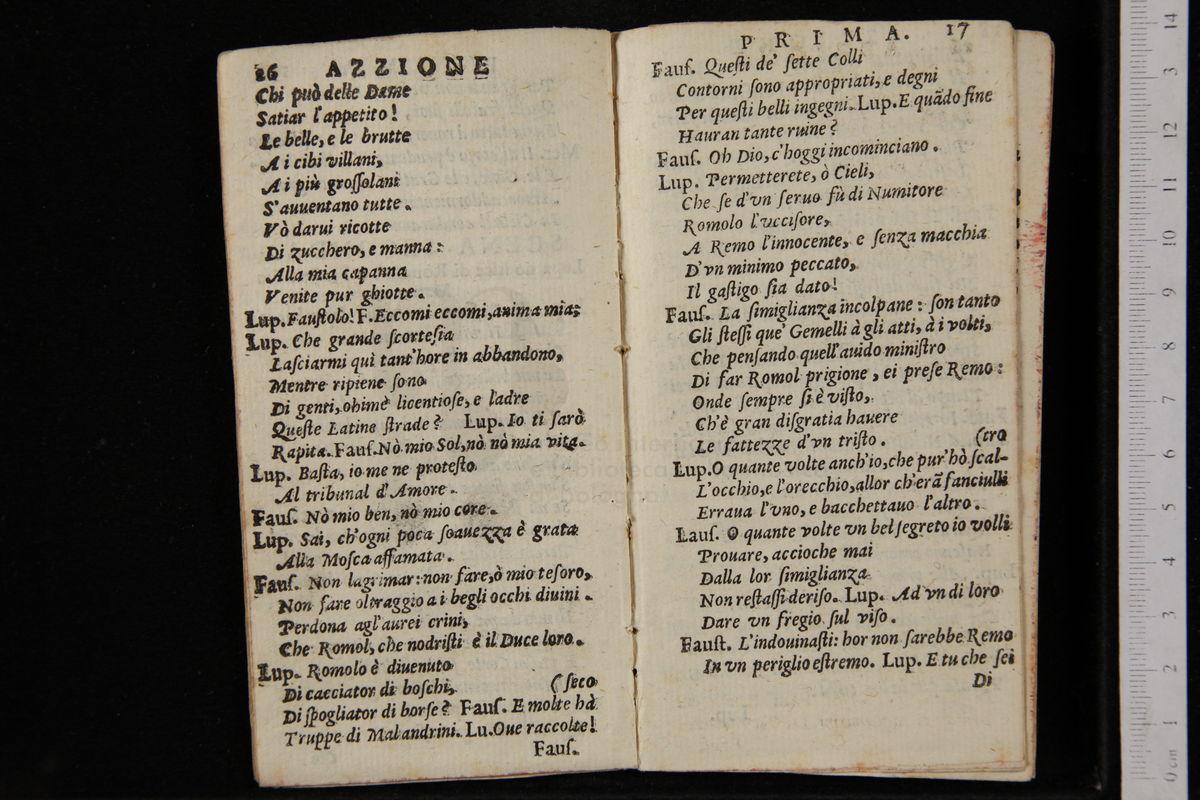 26 AZZIONE
Chi può delle Dame
Satiar l'appetito!
Le belle, e le brutte
A i cibi villani,
A i più groſſolani
S'auuentano tutte.
Vò darui ricotte
Di zucchero, e manna:
Alla mia capanna
Venite pur ghiotte.
Lup. Fauſtolo! F. Eccomi eccomi, anima mia;
Lup. Che grande ſcorteſia
Laſciarmi quì tant'hore in abbandono,
Mentre ripiene ſono
Di genti, ohimè licentioſe, e ladre
Queſte Latine ſtrade? Lup. Io ti ſarò
Rapita. Fauſ. Nò mio Sol, nò nò mia vita.
Lup. Baſta, io me ne proteſto
Al tribunal d'Amore.
Fauſ. Nò mio ben, nò mio core.
Lup. Sai, ch'ogni poca ſoauezza è grata
Alla Moſca affamata.
Fauſ. Non lagrimar: non fare, ò mio teſoro,
Non fare oltraggio a i begli occhi diuini.
Perdona agl'aurei crini,
Che Romol, che nodriſti è il Duce loro.
Lup. Romolo è diuenuto
Di cacciator di boſchi, (ſeco
Di ſpogliator di borſe? Fauſ. E molte hà
Truppe di Malandrini. Lu. Oue raccolte!
Fauſ.
PRIMA. 17
Fauſ. Queſti de' ſette Colli
Contorni ſono appropriati, e degni
Per queſti belli ingegni. Lup. E quãdo fine
Hauran tante ruine?
Fauſ. Oh Dio, c'hoggi incominciano.
Lup. Permetterete, ò Cieli,
Che ſe d'vn ſeruo fù di Numitore
Romolo l'vcciſore,
A Remo l'innocente, e ſenza macchia
D'vn minimo peccato,
Il gaſtigo ſia dato!
Fauſ. La ſimiglianza incolpane: ſon tanto
Gli ſteſſi que' Gemelli à gli atti, à i volti,
Che penſando quell'auido miniſtro
Di far Romol prigione, ei preſe Remo:
Onde ſempre ſi è viſto,
Ch'è gran diſgratia hauere
Le fattezze d'vn triſto. (tro
Lup. O quante volte anch'io, che pur'hò ſcal-
L'occhio, e l'orecchio, allor ch'erã fanciulli
Erraua l'vno, e bacchettauo l'altro.
Lauſ. O quante volte vn bel ſegreto io volli
Prouare, accioche mai
Dalla lor ſimiglianza
Non reſtaſſi deriſo. Lup. Ad vn di loro
Dare vn fregio ſul viſo.
Fauſt. L'indouinaſti: hor non ſarebbe Remo
In vn periglio eſtremo. Lup. E tu che ſei
Di
14
13
12
11
10
9
8
7
6
5
4
3
2
1
0 cm